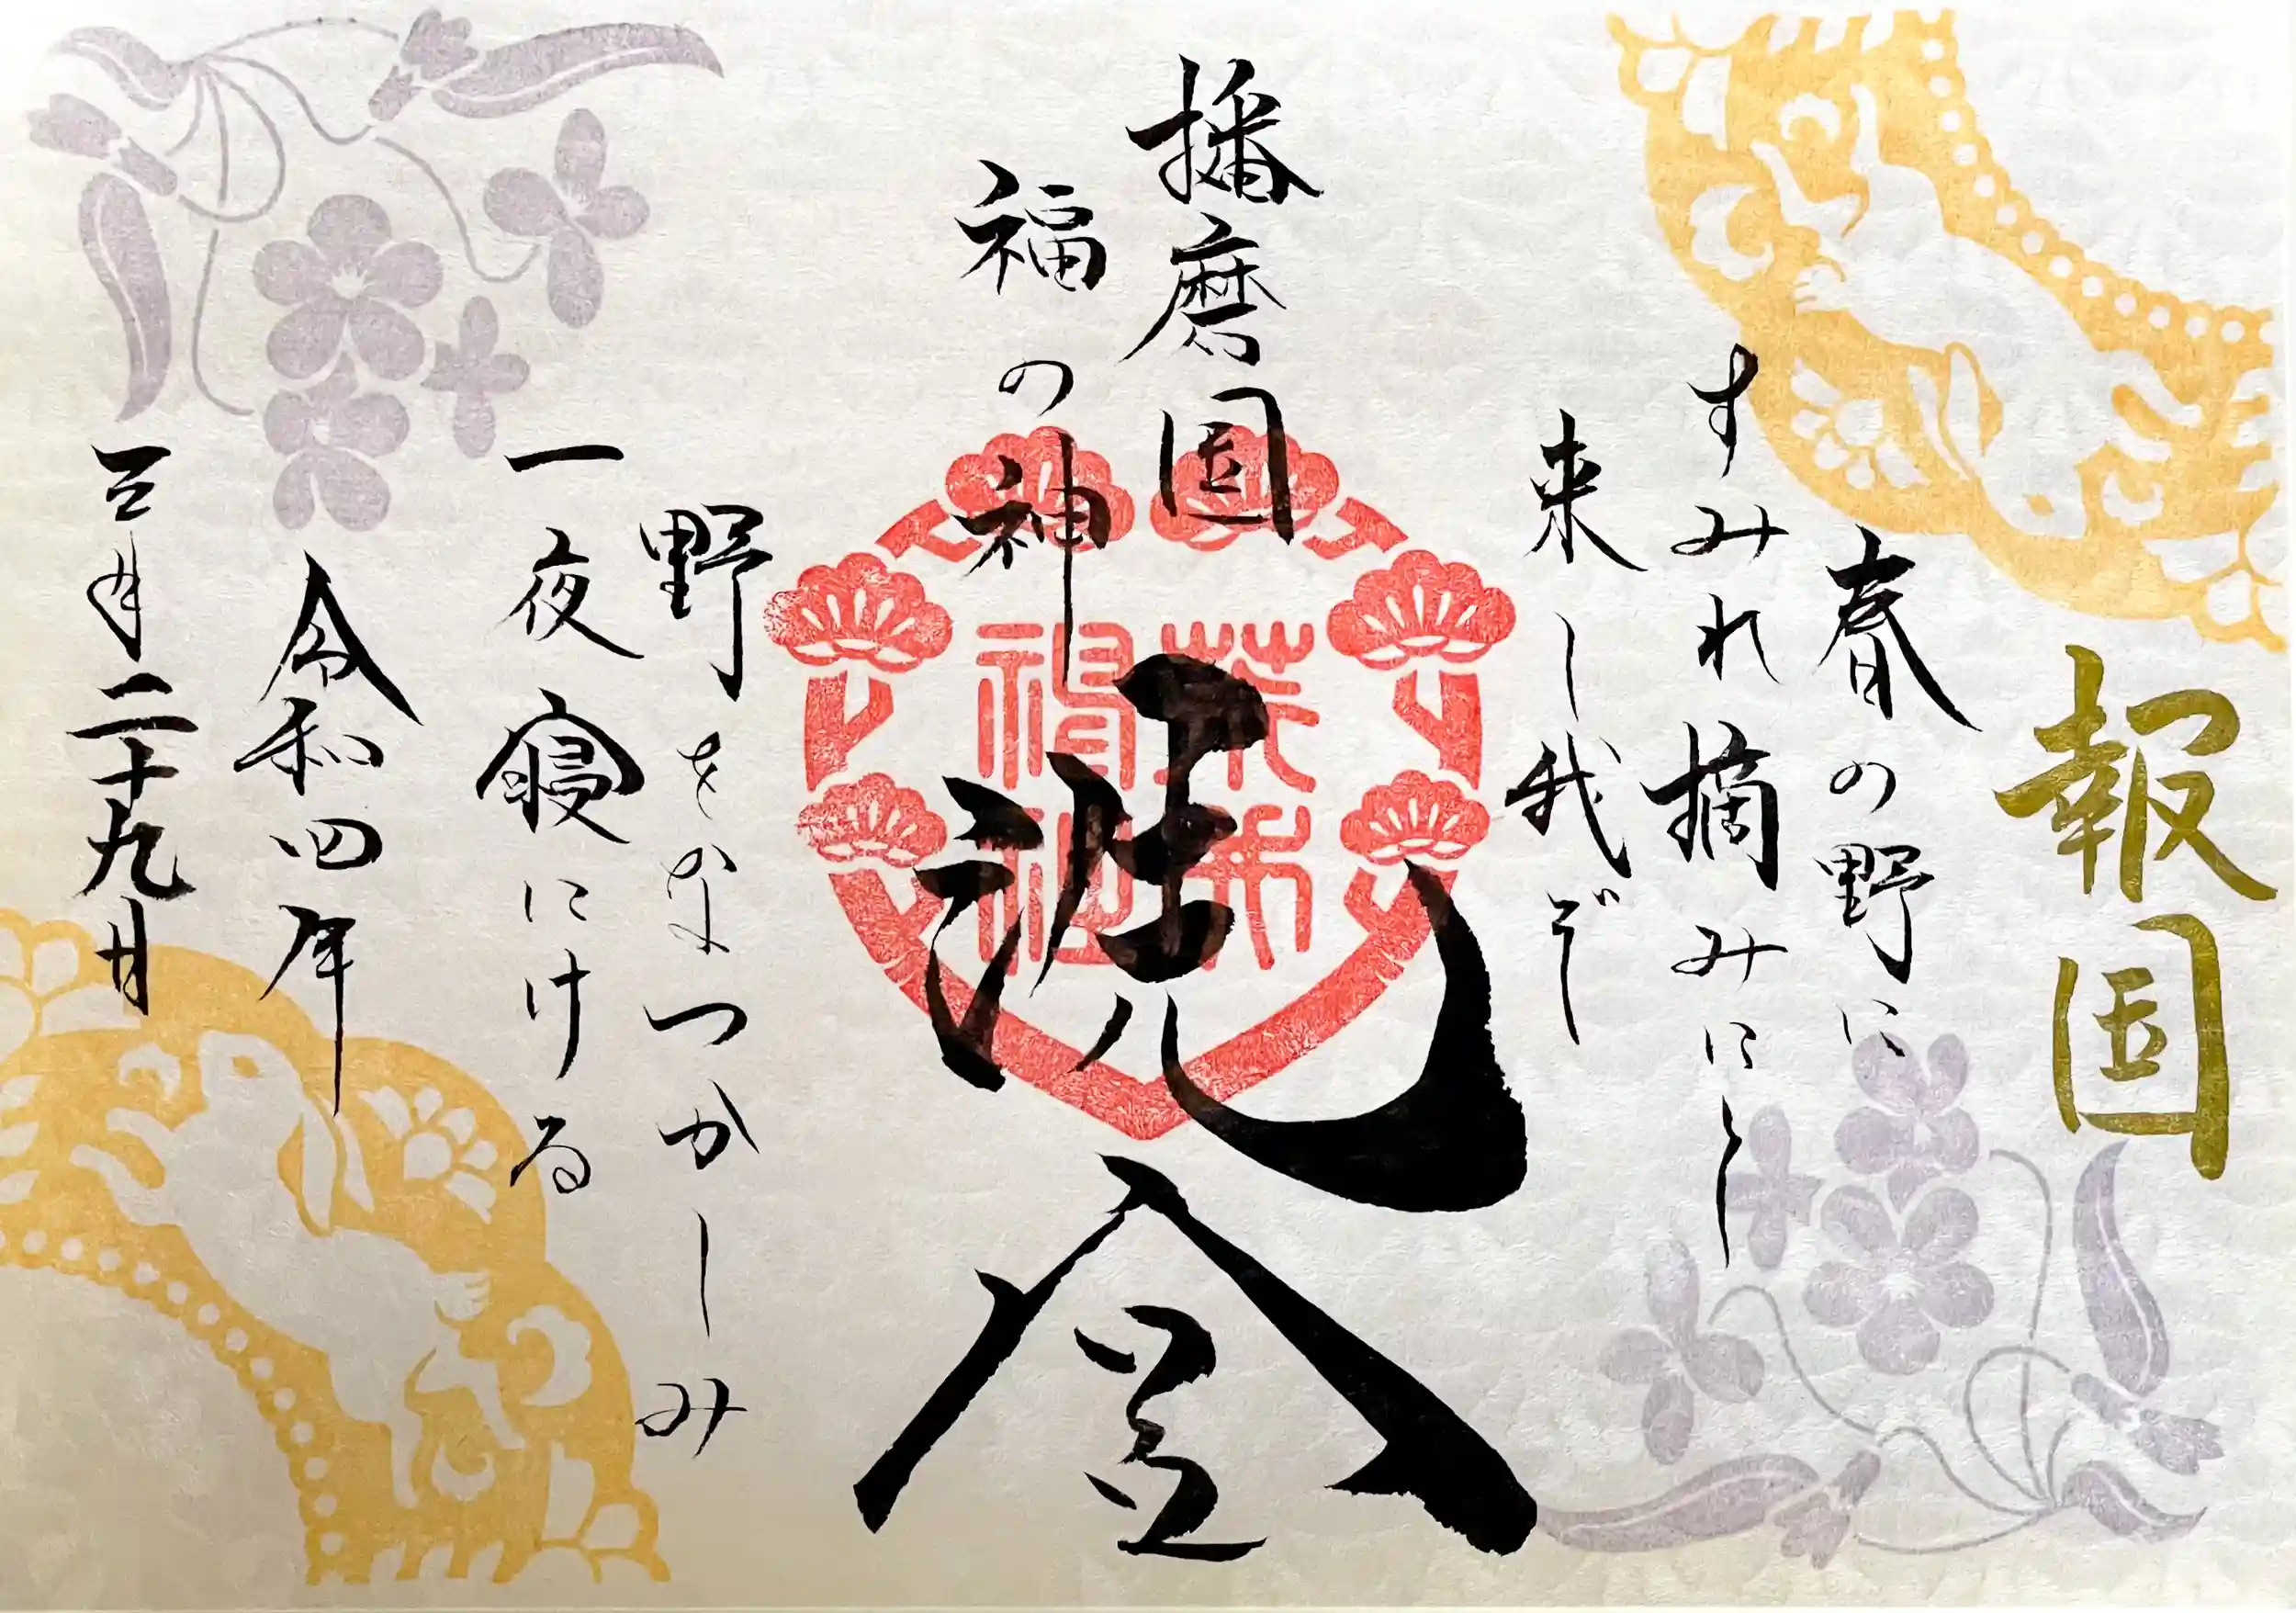 報国
春の野に
すみれ摘みにし
来し我ぞ
播磨国
福の神
野をなつかしみ
一夜寝にける
令和四年
三月二十九日